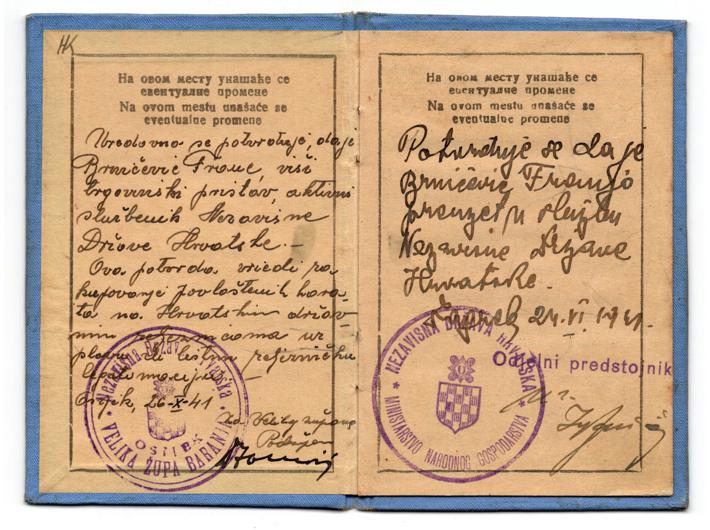 НК
На овом месту унашаће се
евентуалне промене
Na ovom mestu unašaće se
eventualne promene
Uredovno se potvrdjuje, da je
Brnićević Frane, viši
trgovinski pristav, aktivni
službenik Nezavisne
Države Hrvatske. —
Ova potvrda vriedi za
kupovanje povlaštenih kara-
ta na Hrvatskim držav-
nim
legitimaciju. —
Osijek, 26-X-41
Za Velikog župana
Nezavisna Država Hrvatska
OSIJEK
VELIKA ŽUPA BARANJA
На овом месту унашаће се
евентуалне промене
Na ovom mestu unašaće se
eventualne promene
Potvrdjuje se da je
Brnićević Franjo
preuzet u službu
Nezavisne Države
Hrvatske.
Zagreb 24. VI. 1941.
NEZAVISNA DRŽAVA HRVATSKA
MINISTARSTVO NARODNOG GOSPODARSTVA
Odjelni predstojnik